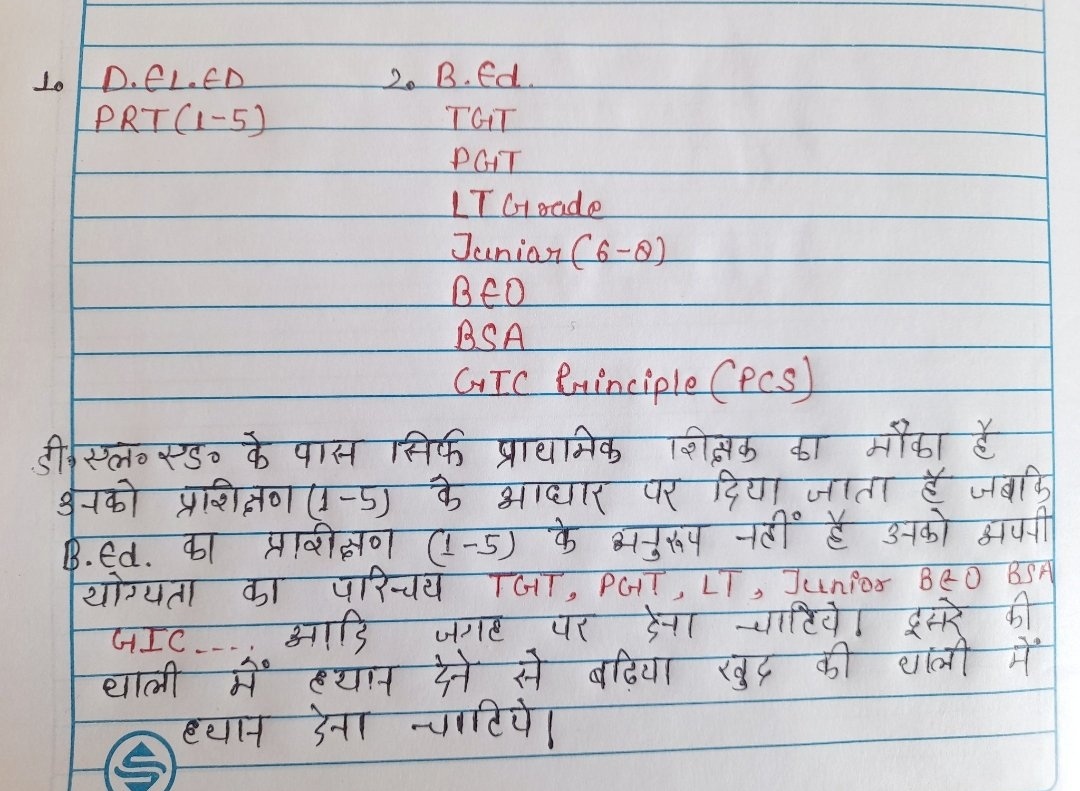 1. D.EL.ED 2. B.Ed.
PRT(1-5) TGT
PGT
LT Grade
Junior (6-8)
BEO
BSA
GIC Principle (PCS)
डी॰ एल॰ एड॰ के पास सिर्फ प्राथमिक शिक्षक का मौका है
उनको प्रशिक्षण (1-5) के आधार पर दिया जाता है जबकि
B.Ed. का प्रशिक्षण (1-5) के अनुरूप नहीं है उनको अपनी
योग्यता का परिचय TGT, PGT, LT, Junior BEO BSA
GIC.... आदि जगह पर देना चाहिये। दूसरे की
थाली में ध्यान देने से बढ़िया खुद की थाली में
ध्यान देना चाहिये।